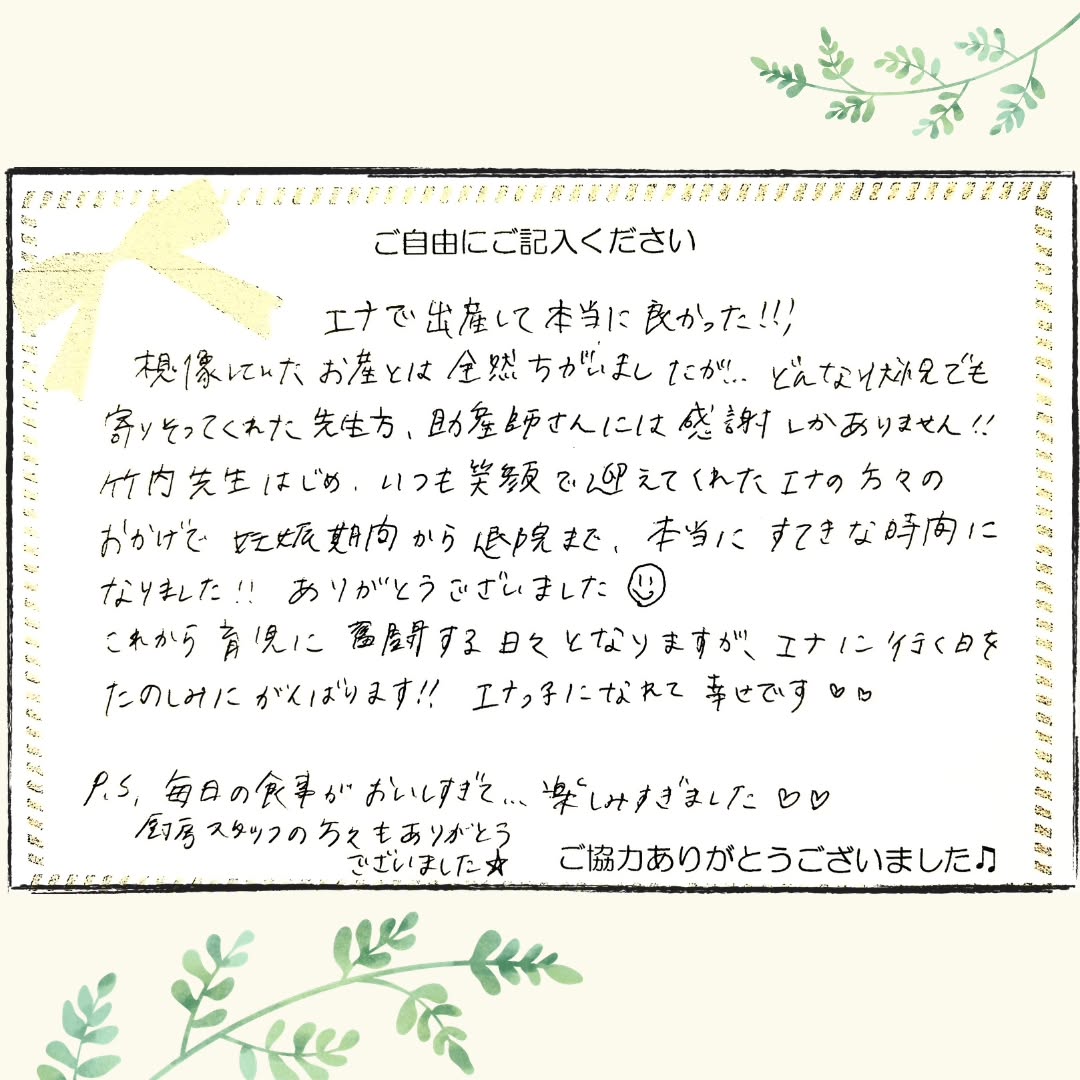 ご自由にご記入ください
エナで出産して本当に良かった!!!
想像していたお産とは全然ちがいましたが... どんな状況でも
寄りそってくれた先生方、助産師さんには感謝しかありません!!
竹内先生はじめ、いつも笑顔で迎えてくれたエナの方々の
おかげで妊娠期間から退院まで、本当にすてきな時間に
なりました!! ありがとうございました☺
これから育児に奮闘する日々となりますが、エナに行く日を
たのしみにがんばります!! エナっ子になれて幸せです♡♡
P.S. 毎日の食事がおいしすぎて... 楽しみすぎました♡♡
厨房スタッフの方々もありがとう
ございました☆
ご協力ありがとうございました♫